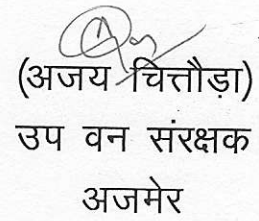 (अजय चित्तौड़ा)
उप वन संरक्षक
अजमेर